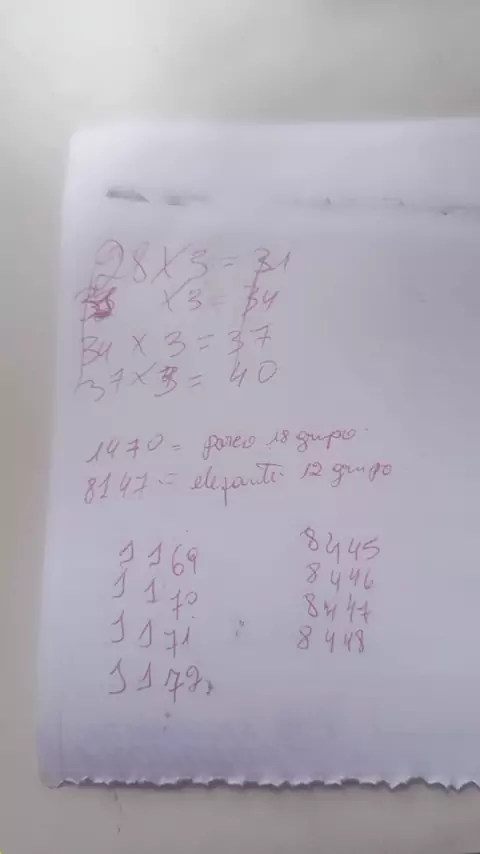 28 X 3 = 31
31 X 3 = 34
34 X 3 = 37
37 X 3 = 40
1470 = porco 18 grupo
8147 = elefante 12 grupo
1169
1170
1171
1172
8445
8446
8447
8448